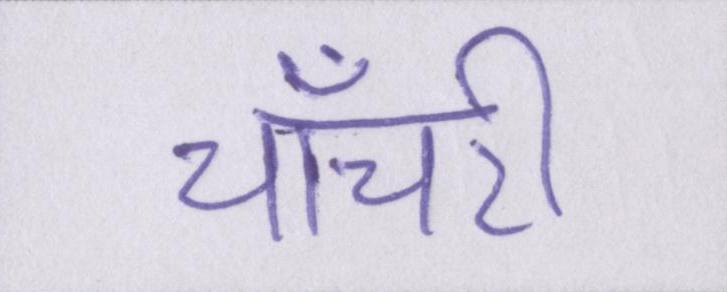 चाँचरी